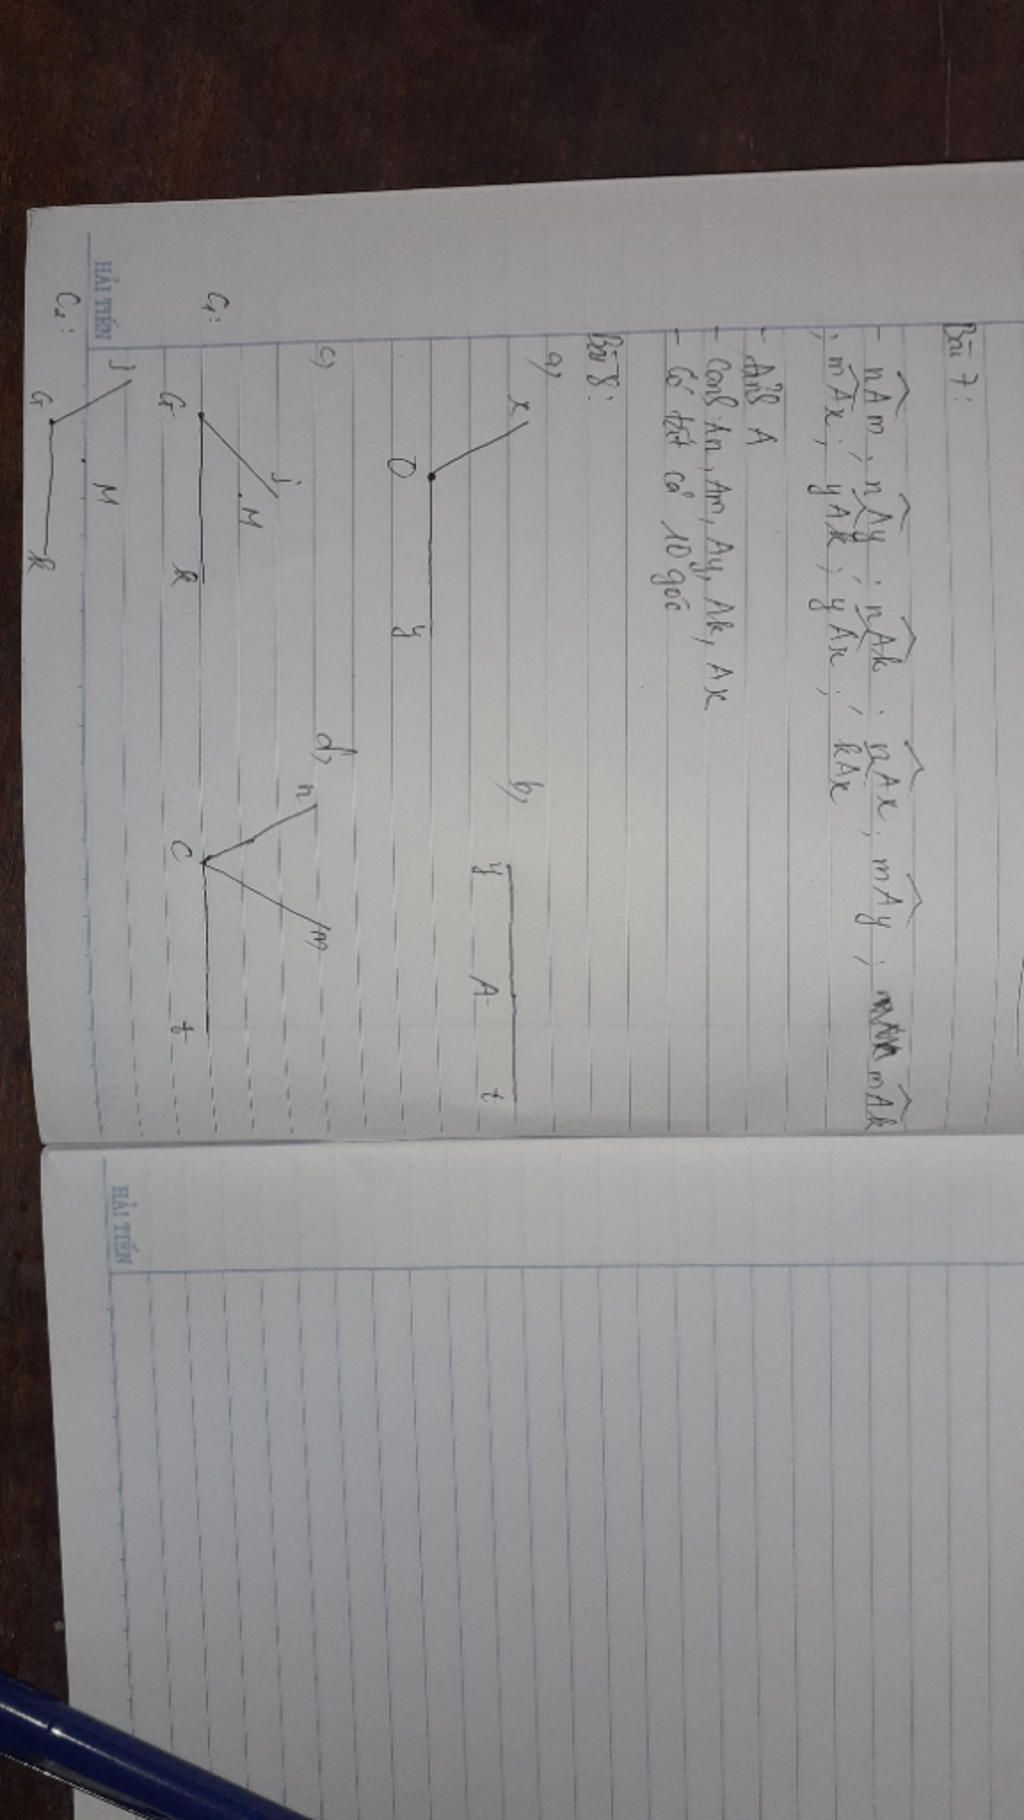 Bài 7:
- nAm, nAy; nAk; nAx; mAy; mAk
, mAx; yAk; yAx; kAx
- Đỉnh A
- Cạnh An, Am, Ay, Ak, Ax
- Có tất cả 10 góc
Bài 8:
a, b,
x
O y
y A t
c) d,
C1:
j
M
G k
n m
C t
HẢI TIẾN
C2:
j
M
G k
HẢI TIẾN